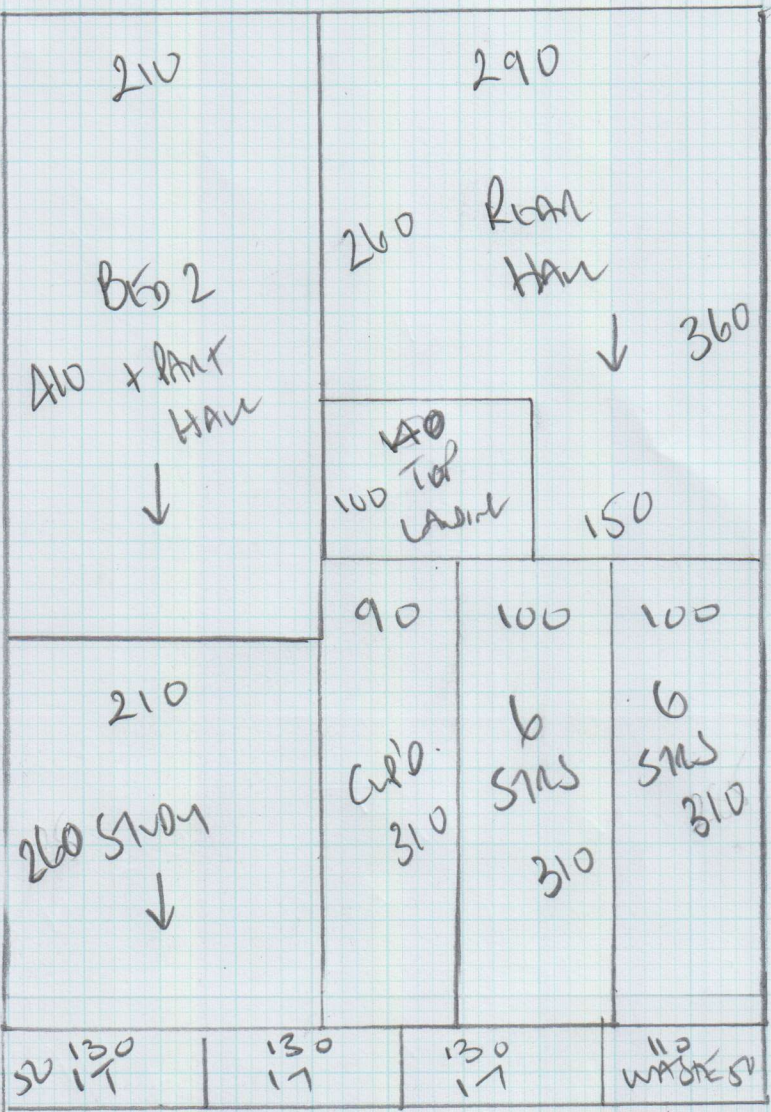 210
BED 2
410 + PART
HALL
290
260
REAR
HALL
360
140
100 TOP
LANDING
150
210
260 STUDY
90
CUP'D.
310
100
6
STRS
310
100
6
STRS
310
50 130
1T
130
1T
130
1T
110
WASTE 50